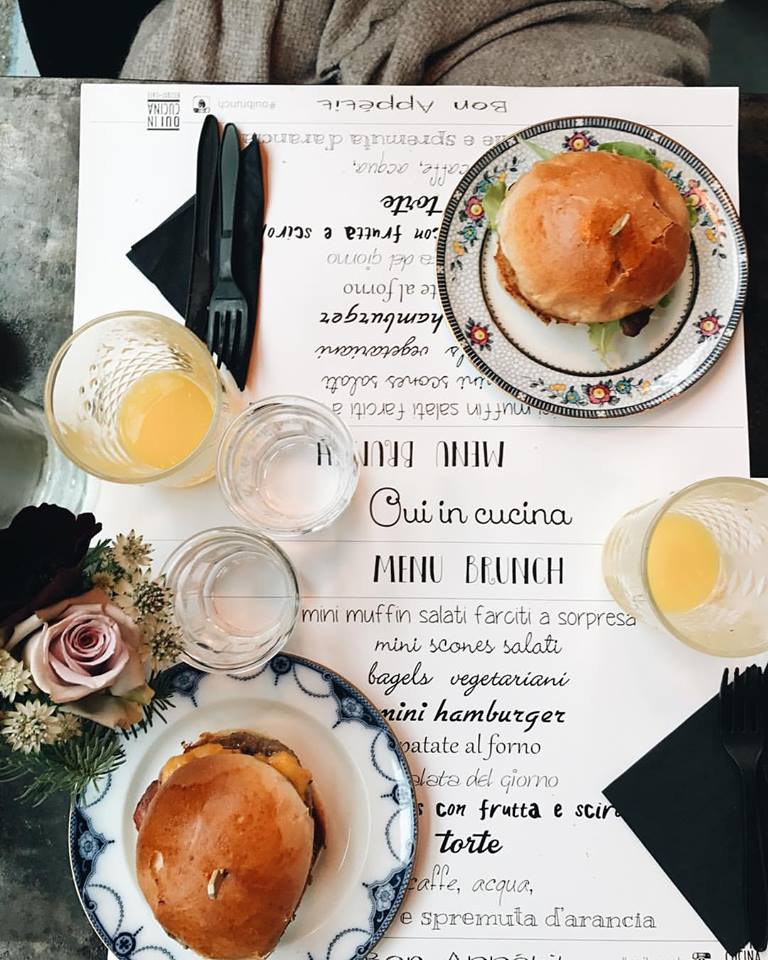 Bon Appétit #ouibrunch OUI IN CUCINA
e spremuta d'arancia
caffe, acqua,
torte
con frutta e sciro
del giorno
al forno
hamburger
vegetariani
scones salati
muffin salati farciti a
MENU BRUNCH
Oui in cucina
MENU BRUNCH
mini muffin salati farciti a sorpresa
mini scones salati
bagels vegetariani
mini hamburger
patate al forno
del giorno
con frutta e sciro
torte
caffe, acqua,
e spremuta d'arancia
Bon Appétit CUCINA